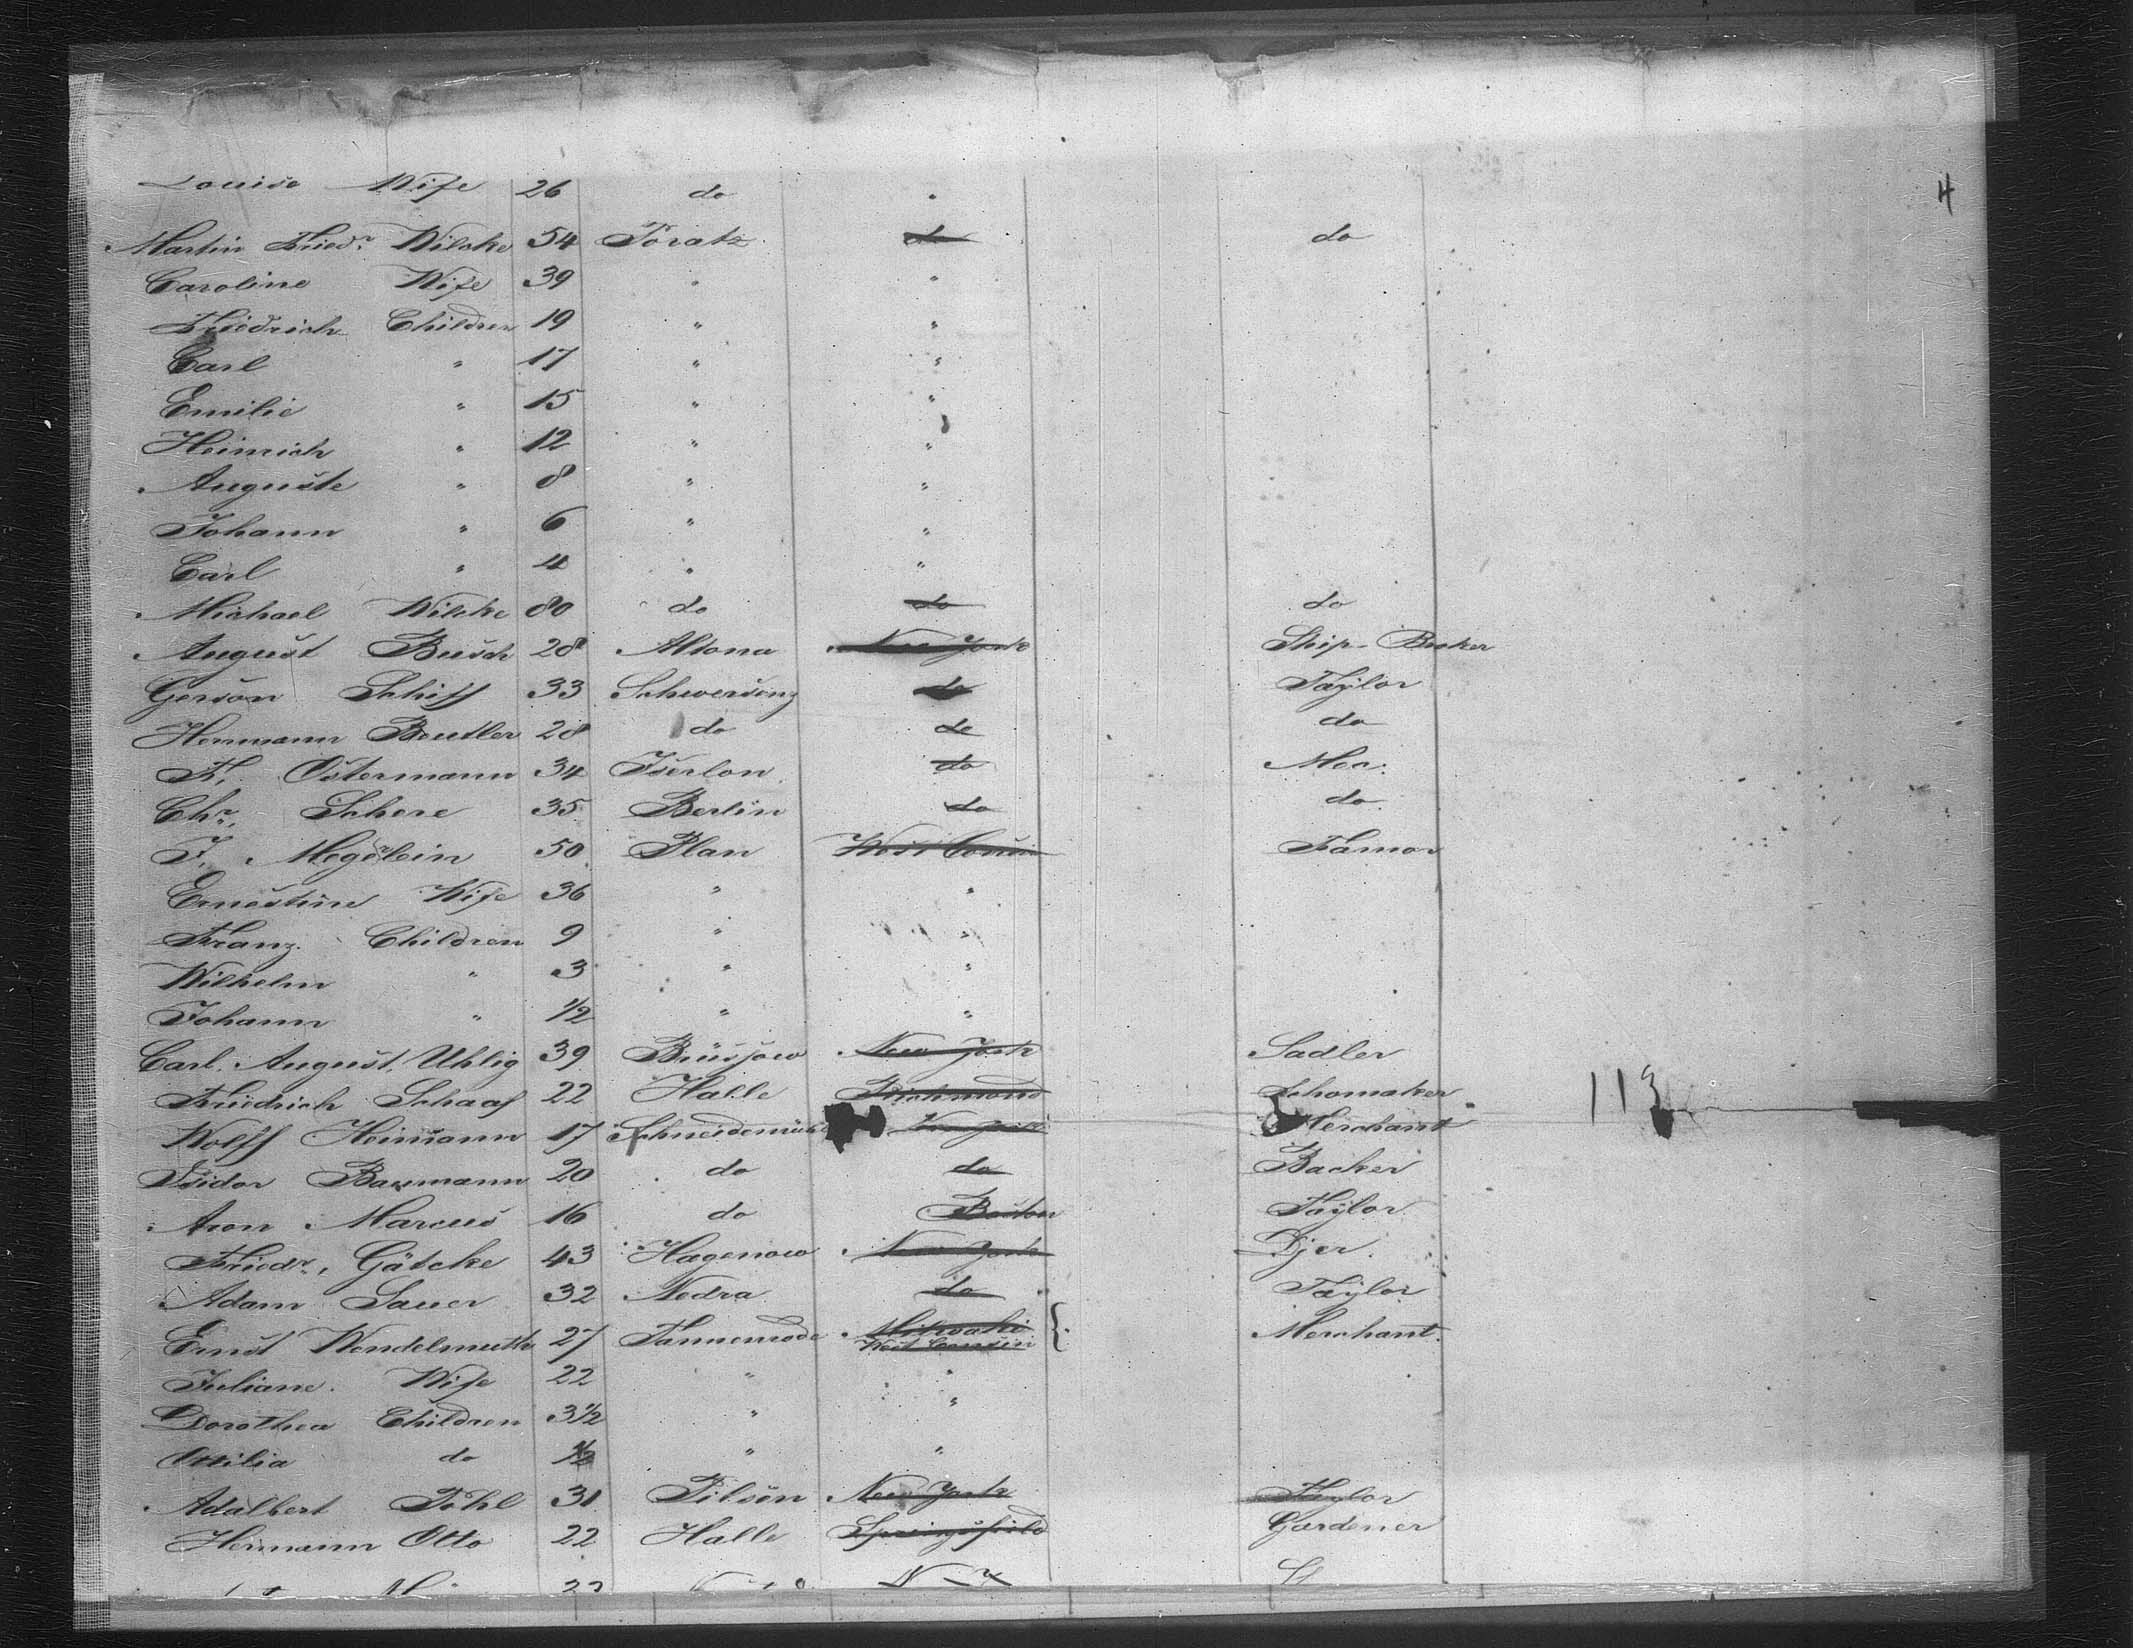 4
Louise Wife 26 do "
Martin Friedr. Wilcke 54 Poratz do do
Caroline Wife 39 " "
Friedrich Children 19 " "
Carl " 17 " "
Emilie " 15 " "
Heinrich " 12 " "
Auguste " 8 " "
Johann " 6 " "
Carl " 4 " "
Michael Wilcke 80 do do do
August Busch 28 Altona New York Ship-Broker
Gerson Schiff 33 Schwersenz do Taylor
Hermann Beutler 28 do do do
F. Ostermann 34 Iserlon do Mer.
Chr. Schere 35 Berlin do do
J. 50 Plan West Consin Farmer
Ernestine Wife 36 " "
Franz Children 9 " "
Wilhelm " 3 " "
Johann " 1/2 " "
Carl August Uhlig 39 Brüssow New York Sadler
Friedrich Schaaf 22 Halle Richmond Schomaker 113
Wolff Heimann 17 Schneidemühl New York Merchant
Isidor Baumann 20 do do Backer
Aron Marcus 16 do Boston Taylor
Friedr. Gätcke 43 Hagenow New York Djer
Adam Sauer 32 Nedra do Taylor
Ernst Wendelmuth 27 Tannerode Milwaki West Consin { Merchant
Juliane Wife 22 " "
Dorothea Children 3 1/2 " "
Ottilia do 1/2 " "
Adalbert Pohl 31 Pilsen New York Taylor
Hermann Otto 22 Halle Springsfield Gardener
22